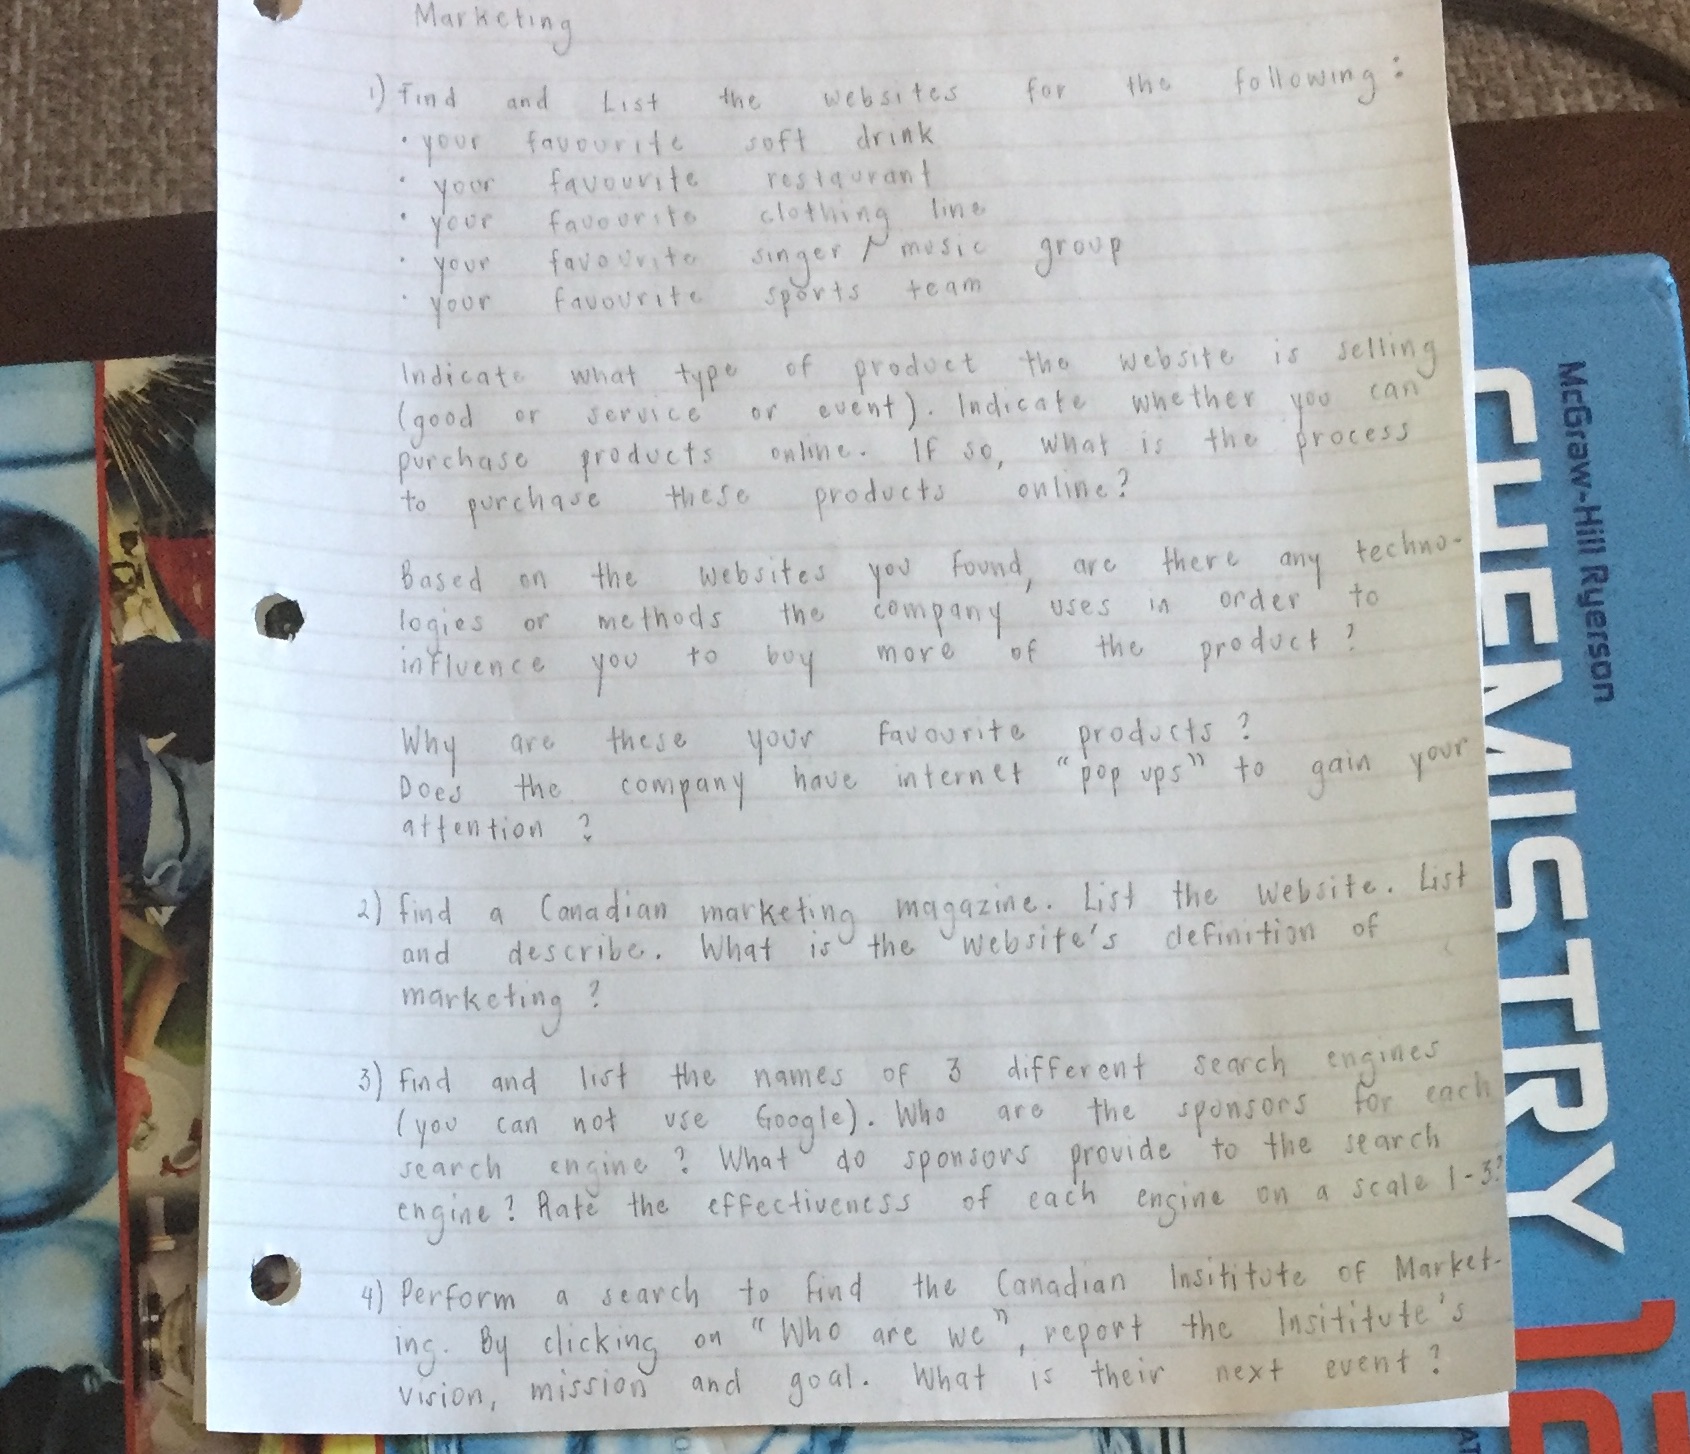 Marketing
1) Find and List the websites for the following:
• your favourite soft drink
• your favourite restaurant
• your favourite clothing line
• your favourite singer / music group
• your favourite sports team
Indicate what type of product the website is selling
(good or service or event). Indicate whether you can
purchase products online. If so, what is the process
to purchase these products online?
Based on the websites you found, are there any techno-
logies or methods the company uses in order to
influence you to buy more of the product?
Why are these your favourite products?
Does the company have internet "pop ups" to gain your
attention?
2) Find a Canadian marketing magazine. List the website. List
and describe. What is the website's definition of
marketing?
3) Find and list the names of 3 different search engines
(you can not use Google). Who are the sponsors for each
search engine? What do sponsors provide to the search
engine? Rate the effectiveness of each engine on a scale 1-3?
4) Perform a search to find the Canadian Insititute of Market-
ing. By clicking on "Who are we", report the Insititute's
vision, mission and goal. What is their next event?
McGraw-Hill Ryerson
CHEMISTRY